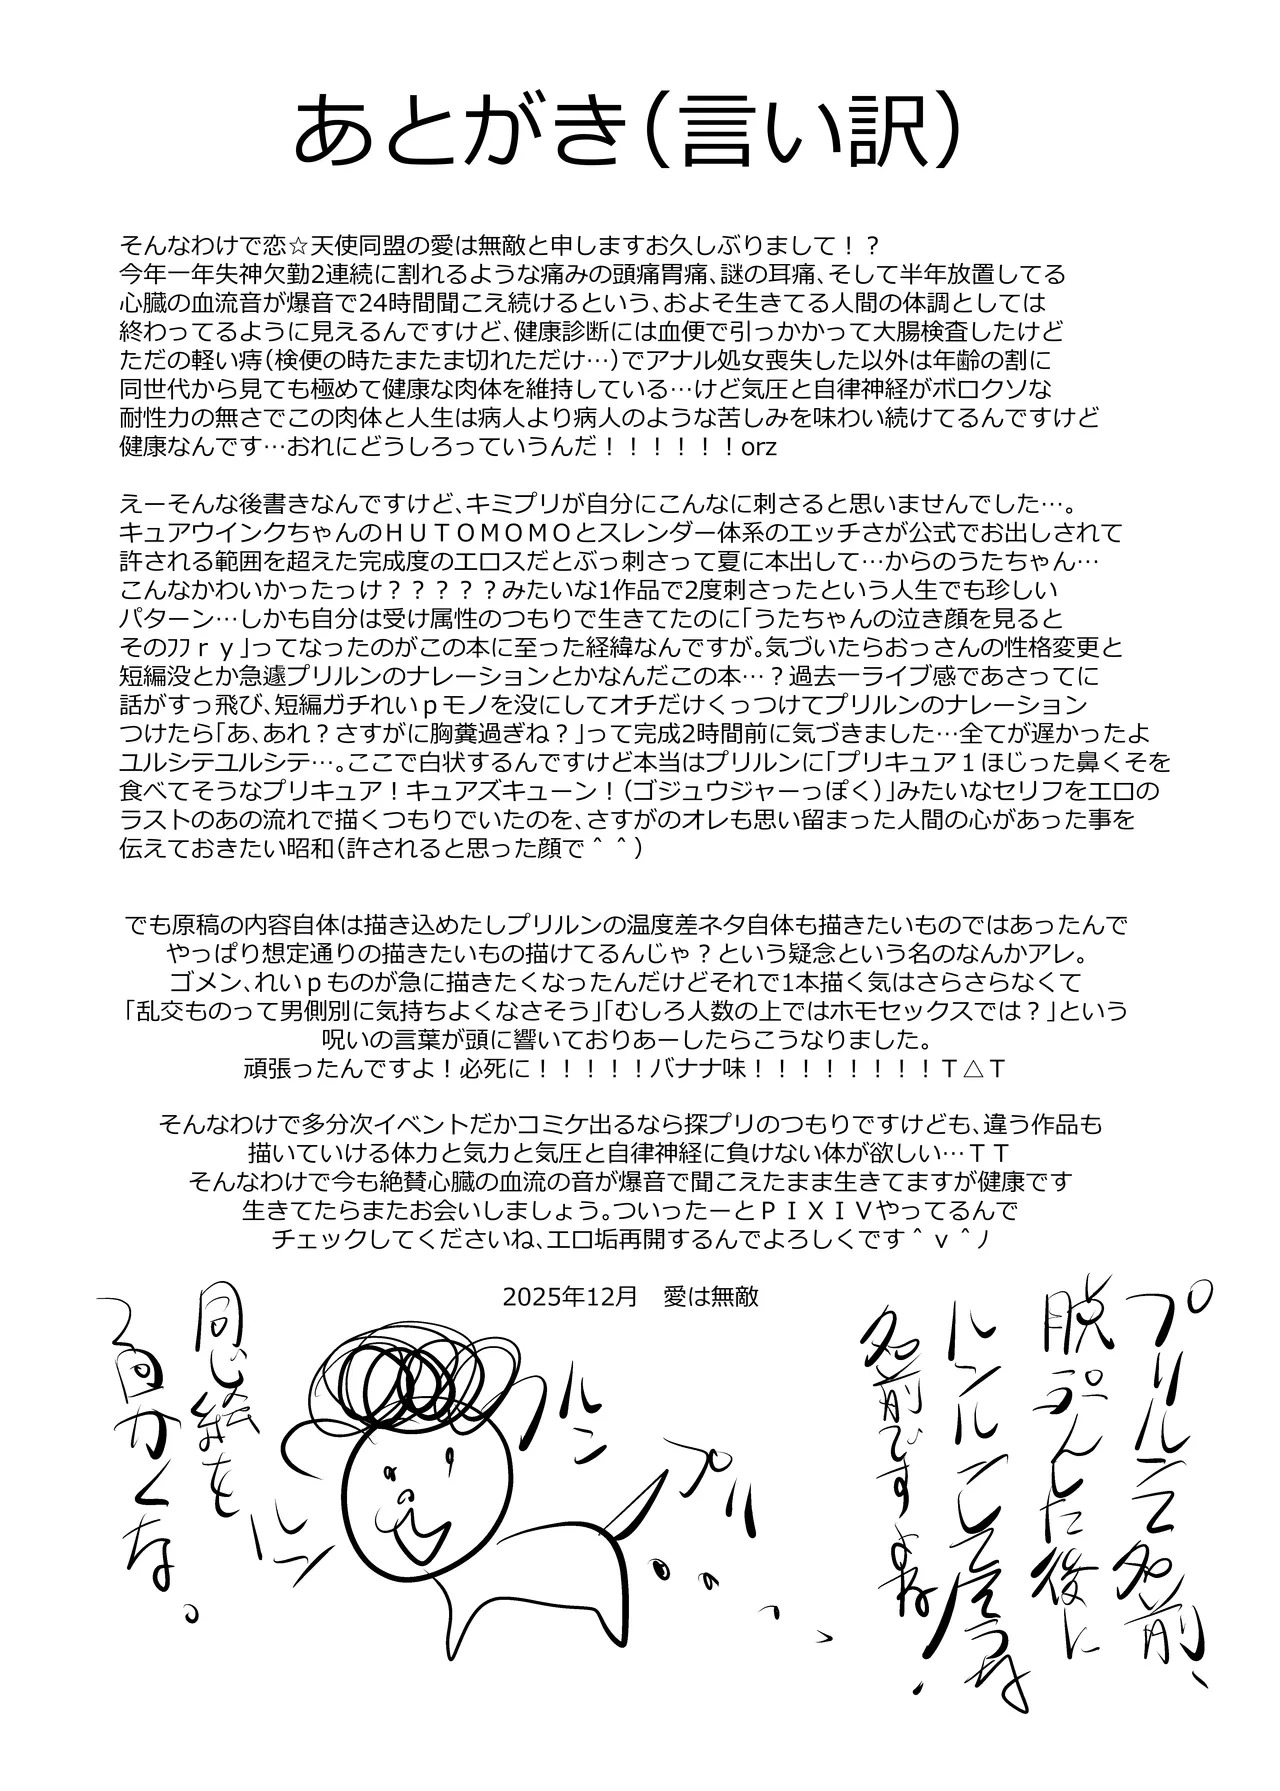 あとがき（言い訳）
そんなわけで恋☆天使同盟の愛は無敵と申しますお久しぶりまして！？
今年一年失神欠勤2連続に割れるような痛みの頭痛胃痛、謎の耳痛、そして半年放置してる
心臓の血流音が爆音で24時間聞こえ続けるという、およそ生きてる人間の体調としては
終わってるように見えるんですけど、健康診断には血便で引っかかって大腸検査したけど
ただの軽い痔（検便の時たまたま切れただけ…）でアナル処女喪失した以外は年齢の割に
同世代から見ても極めて健康な肉体を維持している…けど気圧と自律神経がボロクソな
耐性力の無さでこの肉体と人生は病人より病人のような苦しみを味わい続けてるんですけど
健康なんです…おれにどうしろっていうんだ！！！！！！orz
えーそんな後書きなんですけど、キミプリが自分にこんなに刺さると思いませんでした…。
キュアウインクちゃんのＨＵＴＯＭＯＭＯとスレンダー体系のエッチさが公式でお出しされて
許される範囲を超えた完成度のエロスだとぶっ刺さって夏に本出して…からのうたちゃん…
こんなかわいかったっけ？？？？？みたいな1作品で2度刺さったという人生でも珍しい
パターン…しかも自分は受け属性のつもりで生きてたのに「うたちゃんの泣き顔を見ると
そのﾌﾌｒｙ」ってなったのがこの本に至った経緯なんですが。気づいたらおっさんの性格変更と
短編没とか急遽プリルンのナレーションとかなんだこの本…？過去一ライブ感であさってに
話がすっ飛び、短編ガチれいｐモノを没にしてオチだけくっつけてプリルンのナレーション
つけたら「あ、あれ？さすがに胸糞過ぎね？」って完成2時間前に気づきました…全てが遅かったよ
ユルシテユルシテ…。ここで白状するんですけど本当はプリルンに「プリキュア１ほじった鼻くそを
食べてそうなプリキュア！キュアズキューン！（ゴジュウジャーっぽく）」みたいなセリフをエロの
ラストのあの流れで描くつもりでいたのを、さすがのオレも思い留まった人間の心があった事を
伝えておきたい昭和（許されると思った顔で＾＾）
でも原稿の内容自体は描き込めたしプリルンの温度差ネタ自体も描きたいものではあったんで
やっぱり想定通りの描きたいもの描けてるんじゃ？という疑念という名のなんかアレ。
ゴメン、れいｐものが急に描きたくなったんだけどそれで1本描く気はさらさらなくて
「乱交ものって男側別に気持ちよくなさそう」「むしろ人数の上ではホモセックスでは？」という
呪いの言葉が頭に響いておりあーしたらこうなりました。
頑張ったんですよ！必死に！！！！！バナナ味！！！！！！！！Ｔ△Ｔ
そんなわけで多分次イベントだかコミケ出るなら探プリのつもりですけども、違う作品も
描いていける体力と気力と気圧と自律神経に負けない体が欲しい…ＴＴ
そんなわけで今も絶賛心臓の血流の音が爆音で聞こえたまま生きてますが健康です
生きてたらまたお会いしましょう。ついったーとＰＩＸＩＶやってるんで
チェックしてくださいね、エロ垢再開するんでよろしくです＾ｖ＾ﾉ
2025年12月　愛は無敵
プリルンて名前、
脱ぷんした後に
ルンルンしてそうな
名前ですよね！
プリ
ルン
ルン
同じ絵を
2回かくな。